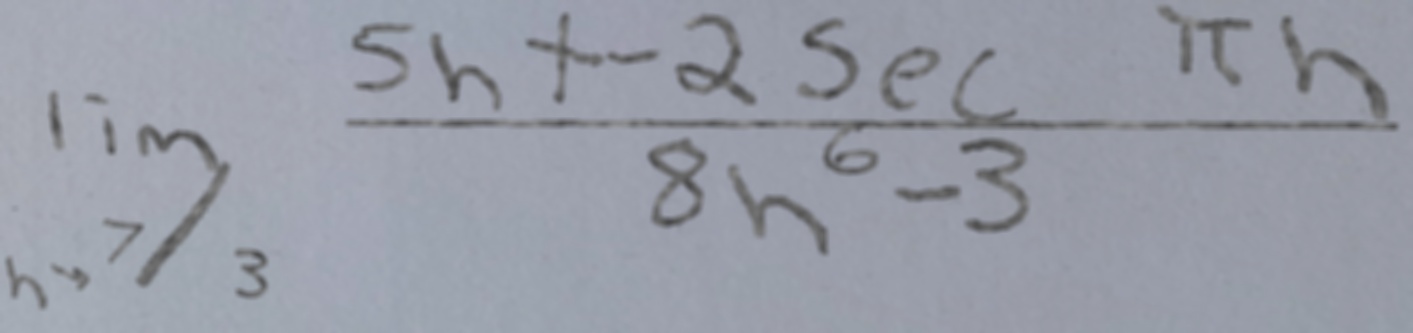 lim h→7/3 (5h+-2 sec πh)/(8h⁶-3)